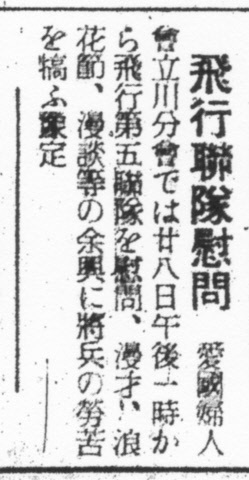 飛行聯隊慰問
愛國婦人
會立川分會では廿八日午後一時か
ら飛行第五聯隊を慰問、漫才、浪
花節、漫談等の余興に將兵の勞苦
を犒ふ豫定